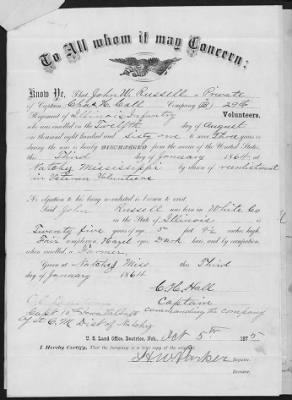 To All whom it may Concern:
Know Ye, That John W. Russell a Private
of Captain Chas H. Call Company (B) 29th
Regiment of Illinois Infantry Volunteers,
who was enlisted on the Twelfth day of August
one thousand eight hundred and sixty one to serve three years or
during the war is hereby DISCHARGED from the service of the United States,
this Third day of January 1864, at
Natchez Mississippi by reason of reenlistment
in Veteran Volunteers
No objection to his being reenlisted is known to exist.
Said John Russell was born in White Co
in the State of Illinois, is
Twenty five years of age, 5 feet 9½ inches high,
Fair complexion, Hazel eyes, Dark hair, and by occupation,
when enlisted, a Farmer.
Given at Natchez Miss this Third
day of January 1864
C. H. Hall
Captain
commanding the company
Capt 15
A. C. M. Dist of Natchez
U. S. Land Office, Beatrice, Neb., Oct 5th 187
I Hereby Certify, That the foregoing is a true copy of the original
H. W. Parker
Register.
Receiver.